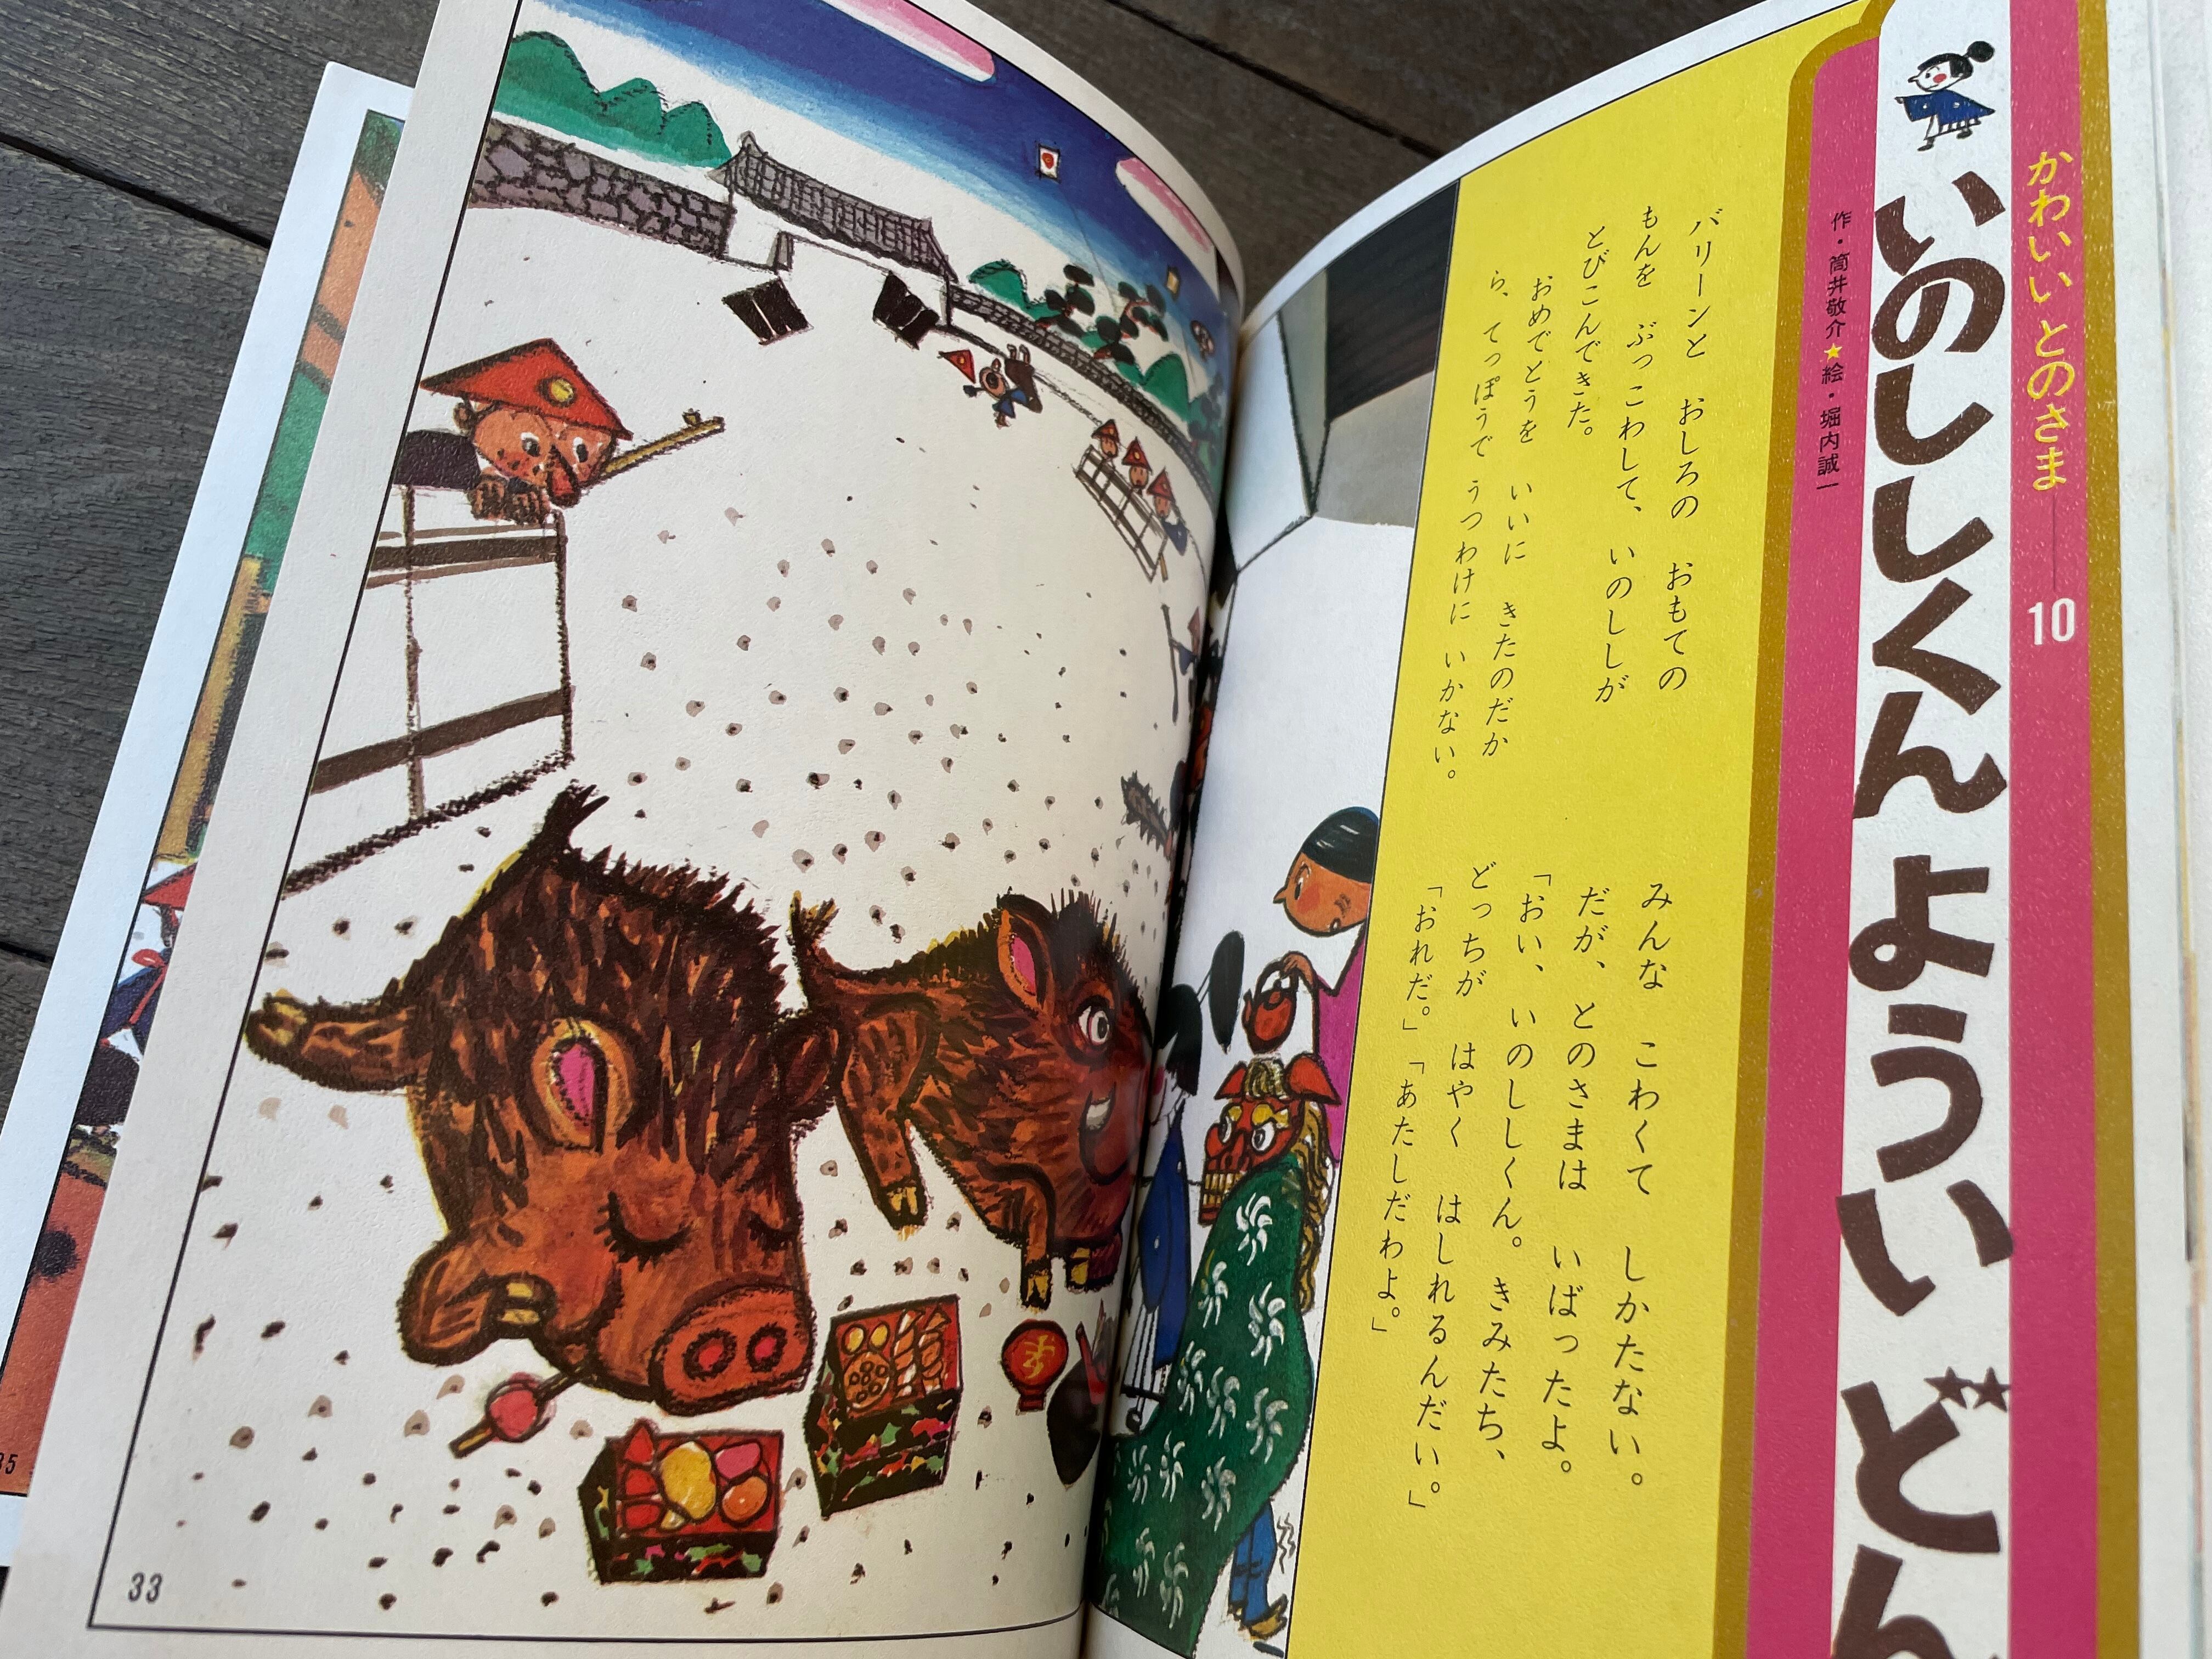 かわいい とのさま——10
いのししくん ようい どん
作・筒井敬介★絵・堀内誠一
バリーンと おしろの おもての
もんを ぶっこわして、いのししが
とびこんできた。
おめでとうを いいに きたのだか
ら、てっぽうで うつわけに いかない。
みんな こわくて しかたない。
だが、とのさまは いばったよ。
「おい、いのししくん。きみたち、
どっちが はやく はしれるんだい。」
「おれだ。」「あたしだわよ。」
33
35